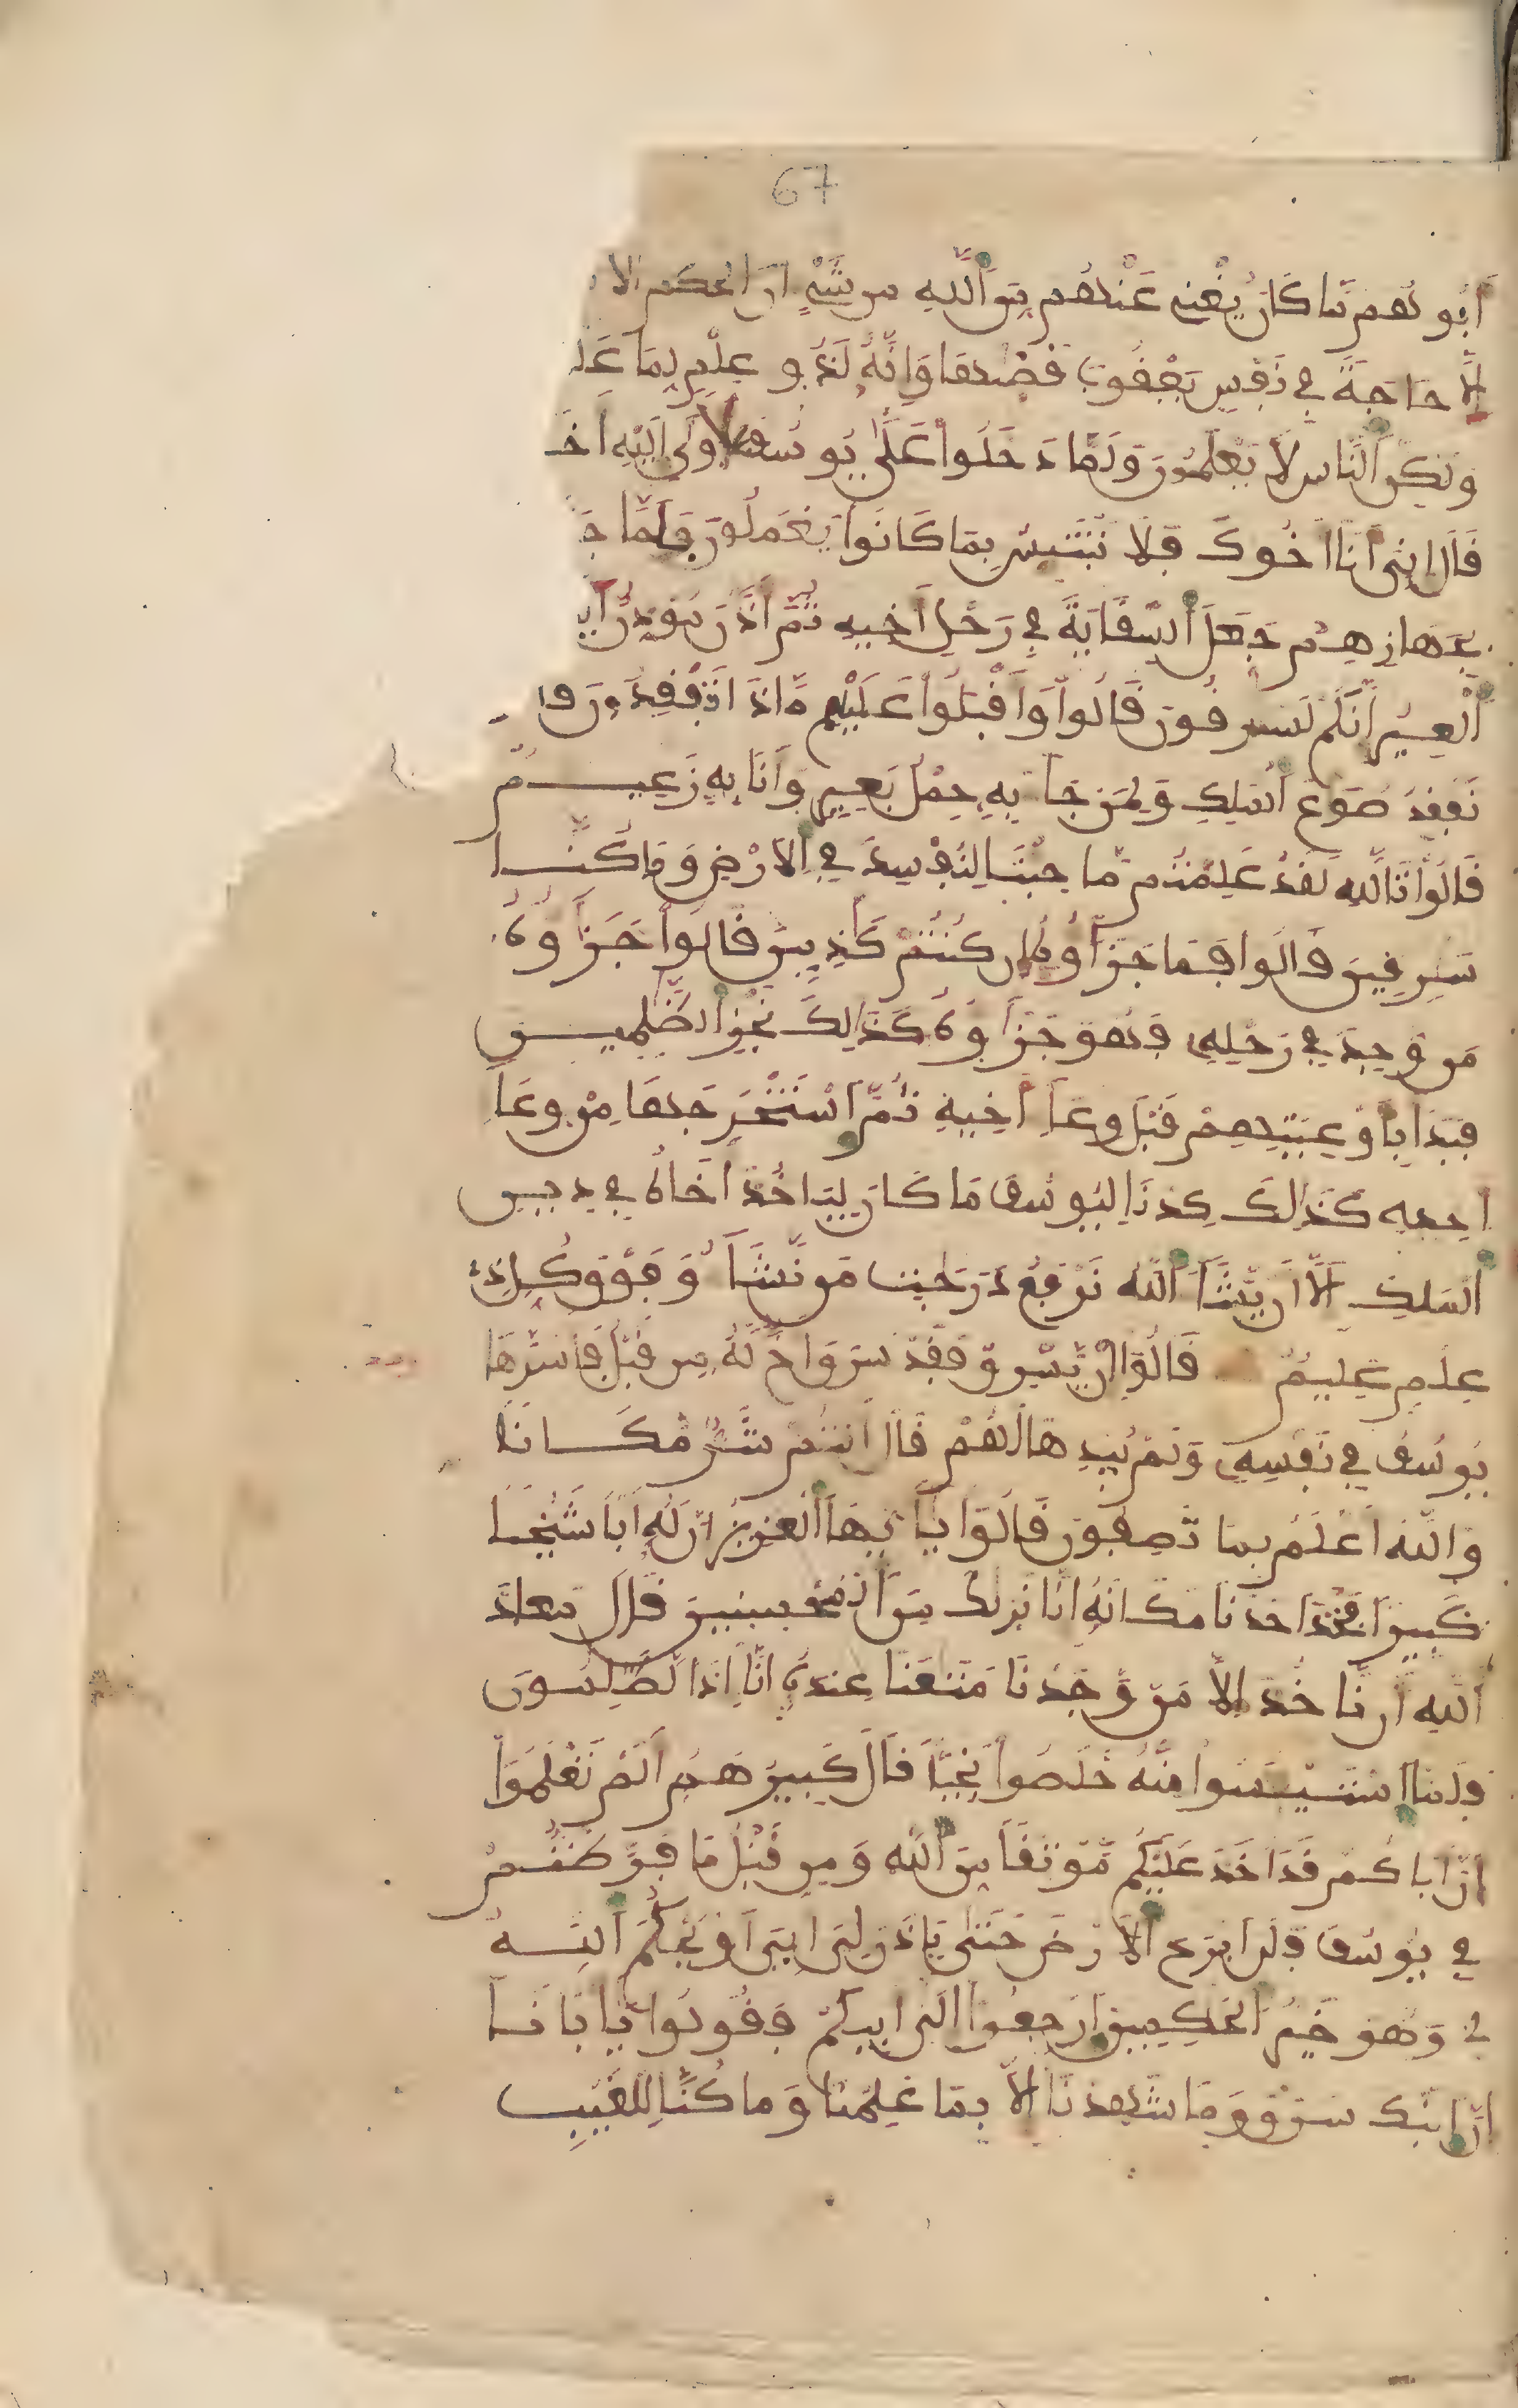 67
أبوهم ما كان يغنى عنهم من الله من شىء ان الحكم الا
إلا حاجة في نفس يعقوب قضىها وإنه لذو علم لما عل
ولكن الناس لا يعلمون ولما دخلوا على يوسف اوى اليه اخ
قال انى انا اخوك فلا تبتئس بما كانوا يعملون فلما ج
بجهازهم جعل السقاية في رحل أخيه ثم أذن موذن اي
العير انكم لسرقون قالوا وأقبلوا عليهم ماذا تفقدون قا
نفقد صوع الملك ولمن جا به حمل بعير وانا به زعيم
قالوا تالله لقد علمتم ما جئنا لنفسد في الارض وما كنا
سرقين قالوا فما جزاوه ان كنتم كذبين قالوا جزاوه
من وجد في رحله فهو جزاوه كذالك نجزى الظلمين
فبدا باوعيتهم قبل وعا اخيه ثم استخرجها من وعا
اخيه كذالك كدنا ليوسف ما كان لياخذ اخاه في دين
الملك الا ان يشا الله نرفع درجت من نشا وفوق كل ذى
علم عليم قالوا ان يسرق فقد سرق اخ له من قبل فاسرها
يوسف في نفسه ولم يبدها لهم قال انتم شر مكانا
والله اعلم بما تصفون قالوا يايها العزيز ان له ابا شيخا
كبيرا فخذ احدنا مكانه انا نريك من المحسنين قال معاذ
الله ان ناخذ الا من وجدنا متعنا عنده انا اذا لظلمون
فلما استيئسوا منه خلصوا نجيا قال كبيرهم الم تعلموا
ان اباكم قد اخذ عليكم موثقا من الله ومن قبل ما فرطتم
في يوسف فلن ابرح الارض حتى ياذن لى ابى او يحكم الله
لى وهو خير الحكمين ارجعوا الى ابيكم فقولوا يابانا
ان ابنك سرق وما شهدنا الا بما علمنا وما كنا للغيب